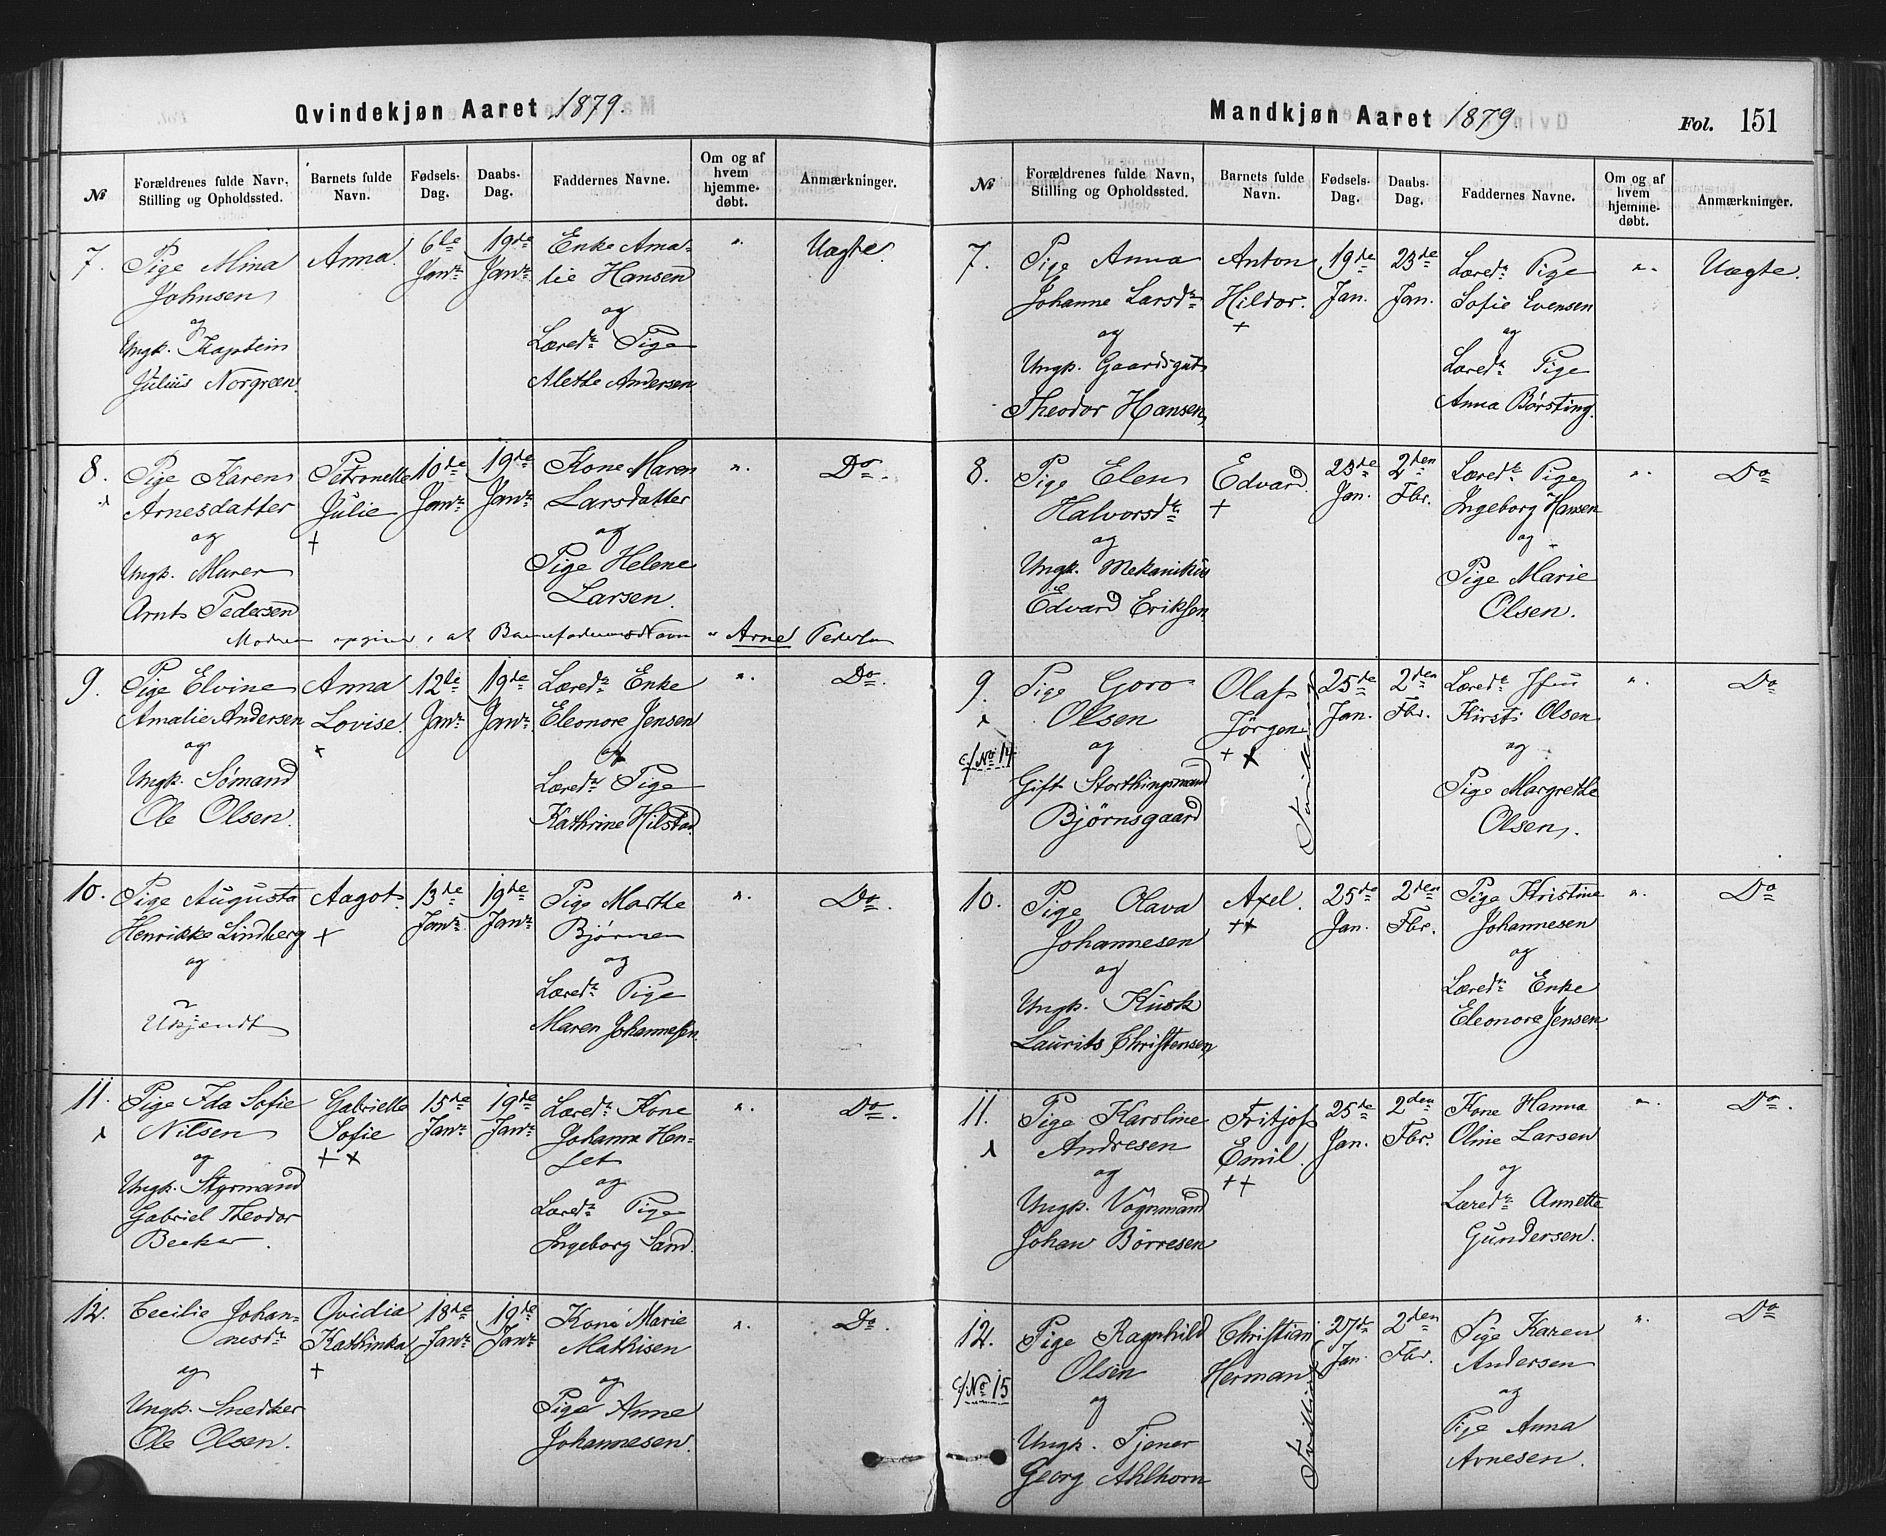 Qvindekjøn Aaret 1879.
№
Forældrenes fulde Navn, Stilling og Opholdssted.
Barnets fulde Navn.
Fødsels-Dag.
Daabs-Dag.
Faddernes Navne.
Om og af hvem hjemme-døbt.
Anmærkninger.
7. Pige Mina Anna. 6te 19de Enke Ama- " Uægte.
Johnsen Janr Janr lie Hansen
og og
Ungk. Kaptein Læredr Pige
Julius Norgreen Alethe Andersen
8. Pige Karen Petronelle 10de 19de Kone Maren " Do.
Arnesdatter Julie Janr Janr Larsdatter
og + og
Ungk. Murer Pige Helene
Arnt Pedersen Larsen.
Moderen opgiver, at Barnefaderens Navn er Arne Pedersen
9. Pige Elvine Anna 12te 19de Læredr Enke " Do.
Amalie Andersen Lovise. Janr Janr Eleonore Jensen
og + og
Ungk. Sømand Læredr Pige
Ole Olsen. Kathrine Hilstad.
10. Pige Augusta Aagot. 13de 19de Pige Marthe " Do.
Henrikke Lindberg + Janr Janr Bjørnsen
og og
Ukjendt Læredr Pige
Maren Johannesen.
11. Pige Ida Sofie Gabrielle 15de 19de Læredr Kone " Do.
Nilsen Sofie Janr Janr Johanne Hen-
og + +
Ungk. Styrmand og
Gabriel Theodor Læredr Pige
Becker. Ingeborg Sand.
12. Cecilie Johan- Ovidia 18de 19de Kone Marie " Do.
nesdr Kathinka Janr Janr Mathisen
og + og
Ungk. Snedker Pige Anne
Ole Olsen. Johannesen.
Mandkjøn Aaret 1879
Fol. 151
№
Forældrenes fulde Navn, Stilling og Opholdssted.
Barnets fulde Navn.
Fødsels-Dag.
Daabs-Dag.
Faddernes Navne.
Om og af hvem hjemme-døbt.
Anmærkninger.
7. Pige Anna Anton 19de 23de Læredr Pige " Uægte.
Johanne Larsdr Hildor. Jan. Jan. Sofie Evensen
og + og
Ungk. Gaardsgut Læredr Pige
Theodor Hansen, Anna Børsting.
8. Pige Elen Edvard. 23de 2den Læredr Pige " Do
Halvorsdr + Jan. Fbr. Ingeborg Hansen
og og
Ungk. Mekanikus Pige Marie
Edvard Eriksen Olsen.
9. Pige Goro Olaf 25de 2den Læredr " Do
Olsen Jørgen Jan. Fbr. Kirsti Olsen
cf No 14 og + + og
Gift Storthingsmand Pige Margrethe
Bjørnsgaard Olsen.
Tvilling
10. Pige Olava Axel. 25de 2den Pige Kristine " Do
Johannesen ++ Jan. Fbr. Johannesen
og og
Ungk. Kusk Læredr Enke
Laurits Christensen Eleonore Jensen
11. Pige Karoline Fritjof 25de 2den Kone Hanna " Do.
Andresen Emil. Jan. Fbr. Oline Larsen
og ++ og
Ungk. Vognmand Læredr Annette
Johan Børresen Gundersen.
12. Pige Ragnhild Christian 27de 2den Pige Karen " Do
Olsen Herman Jan. Fbr. Andersen
cf No 15 og og
Ungk. Tjener Pige Anna
Georg Ahlhorn Arnesen.
Tvilling